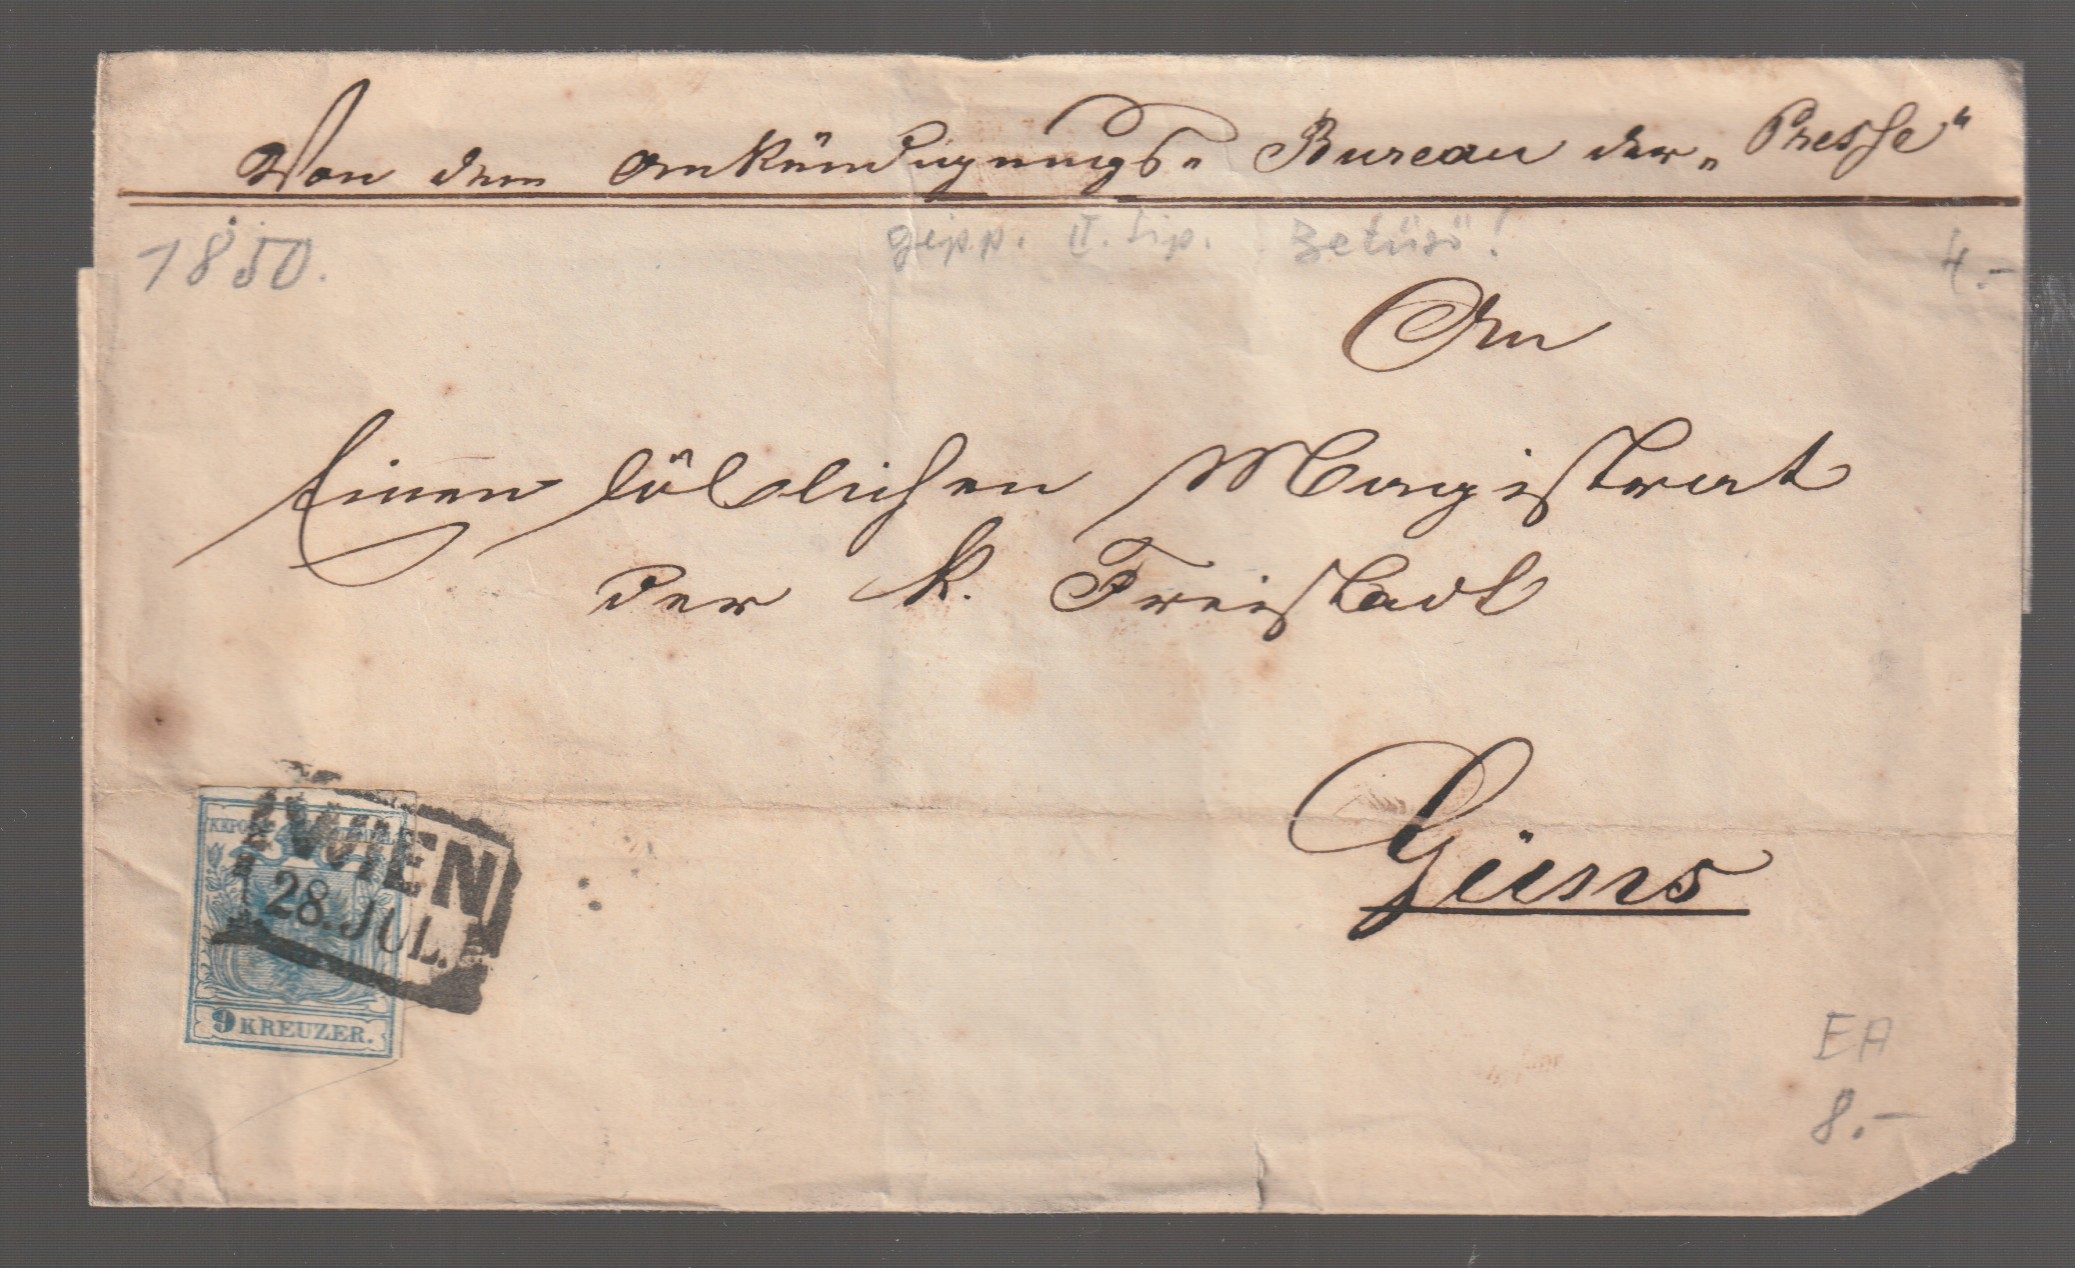 Von dem Ankündigungs- Bureau der „Presse“
1850.
gépp. II. tip. Betűső!
4.-
An
Einen löblichen Magistrat
der k. Freistadt
Güns
WIEN
28. JUL.
9 KREUZER.
EA
8.-